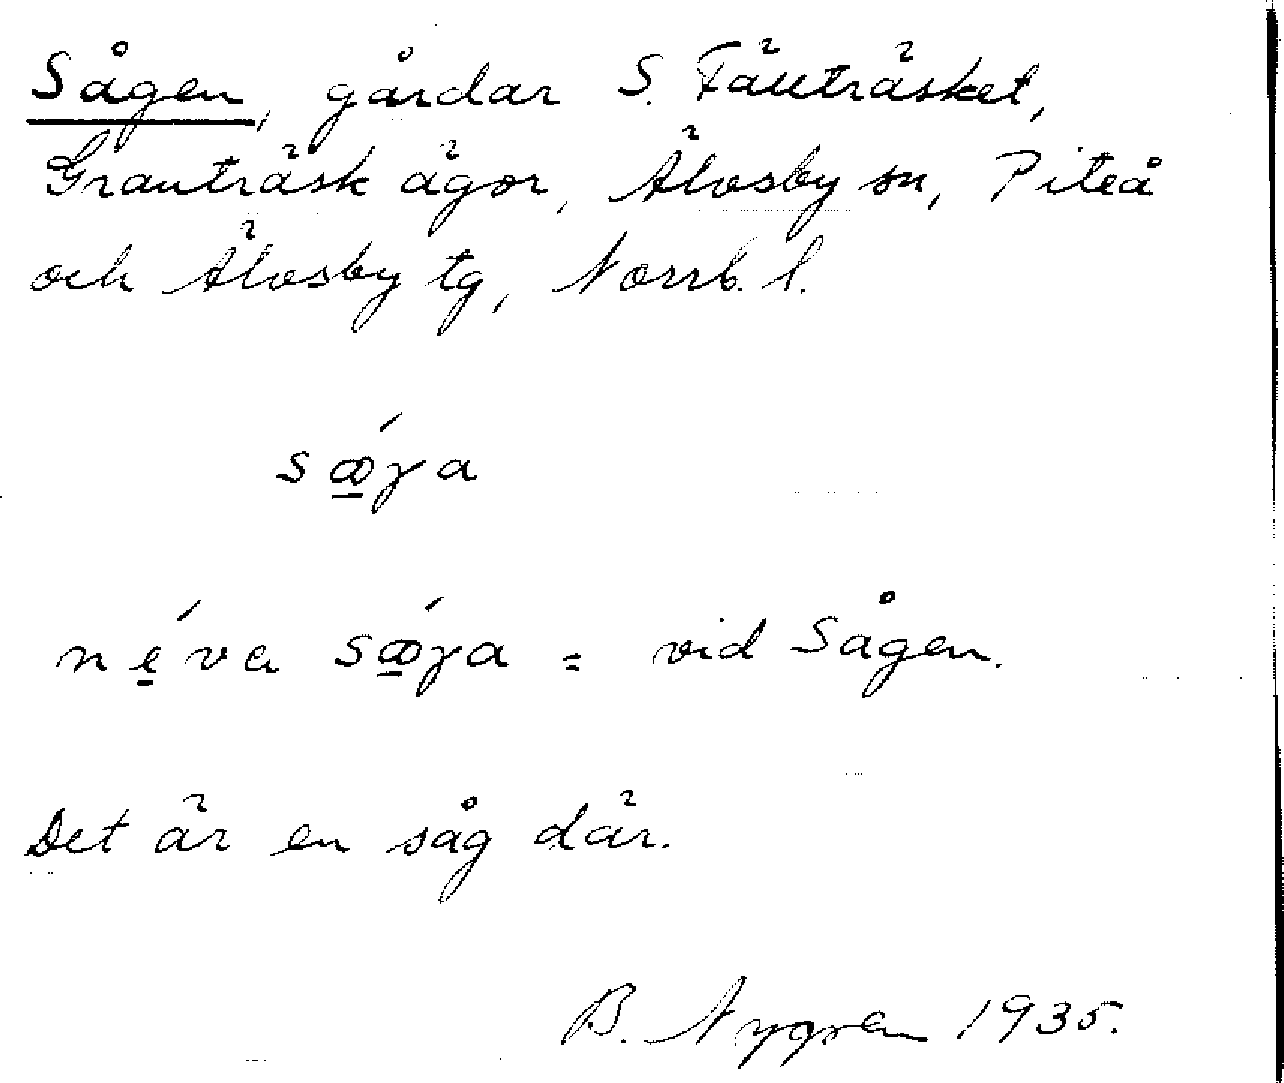 Sågen, gårdar S. Fäuträsket,
Granträsk ägor, Älvsby sn, Piteå
och Älvsby tg, Norrb. l.
sꝏ̲́γa
né̲va sꝏ̲́γa = vid Sågen.
Det är en såg där.
B. Nygren 1935.